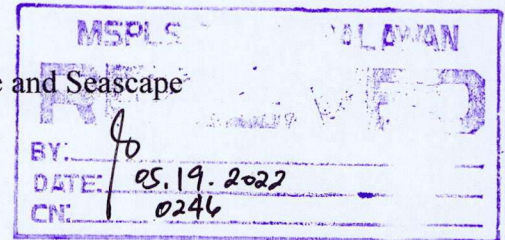 MSPLS PALAWAN
e and Seascape
RECEIVED
BY:
DATE: 05.19.2022
CN: 0246